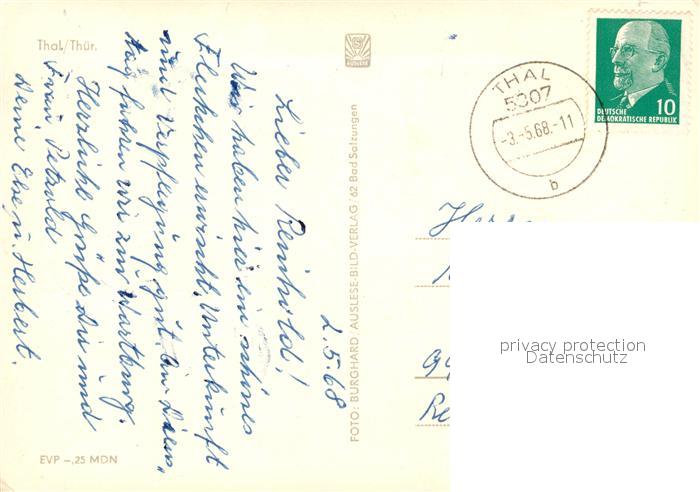 Thal/Thür.
2.5.68
Lieber Reinhold!
Wir haben hier ein schönes
Fleckchen erwischt, Unterkunft
und Verpflegung gut. Am Diens,
tag fuhren wir zur Wartburg.
Herzliche Grüße Dir und
Frau Petzold
Deine Else u. Herbert.
EVP –,25 MDN
AUSLESE
FOTO: BURGHARD / AUSLESE-BILD-VERLAG / 62 Bad Salzungen
THAL
5907
-3.-5.68.-11
b
10
DEUTSCHE
DEMOKRATISCHE REPUBLIK
Herrn
privacy protection
Datenschutz